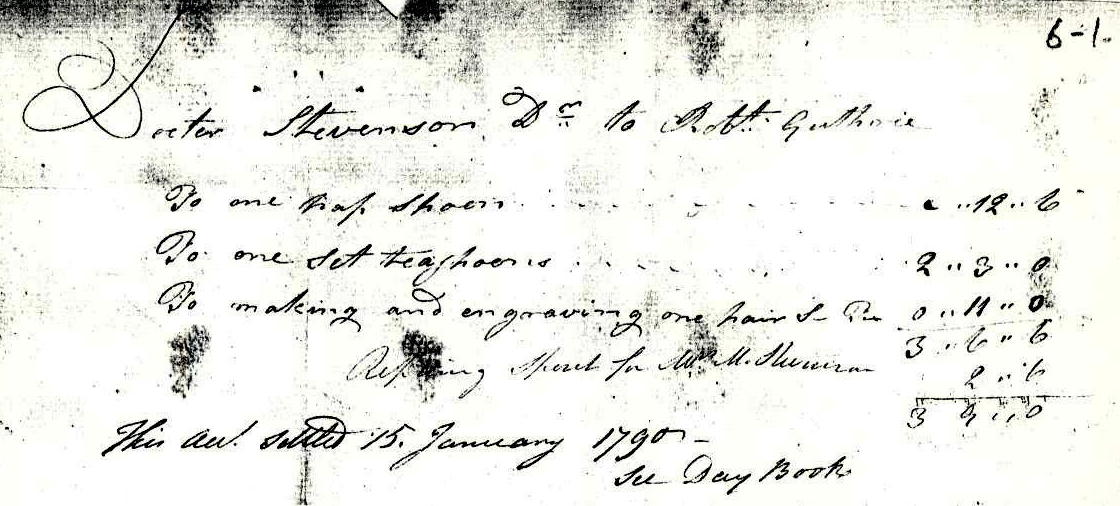 6-1.
Docter Stevenson Dr to Robt. Guthrie
To one shoen " 12 " 6
To one set teaShoens 2 " 3 " 0
To making and engraving one hair 0 " 11 " 0
3 " 6 " 6
spout for 2 " 6
3 9 " 0
This Act. settled 15. January 1790 -
See Day Book